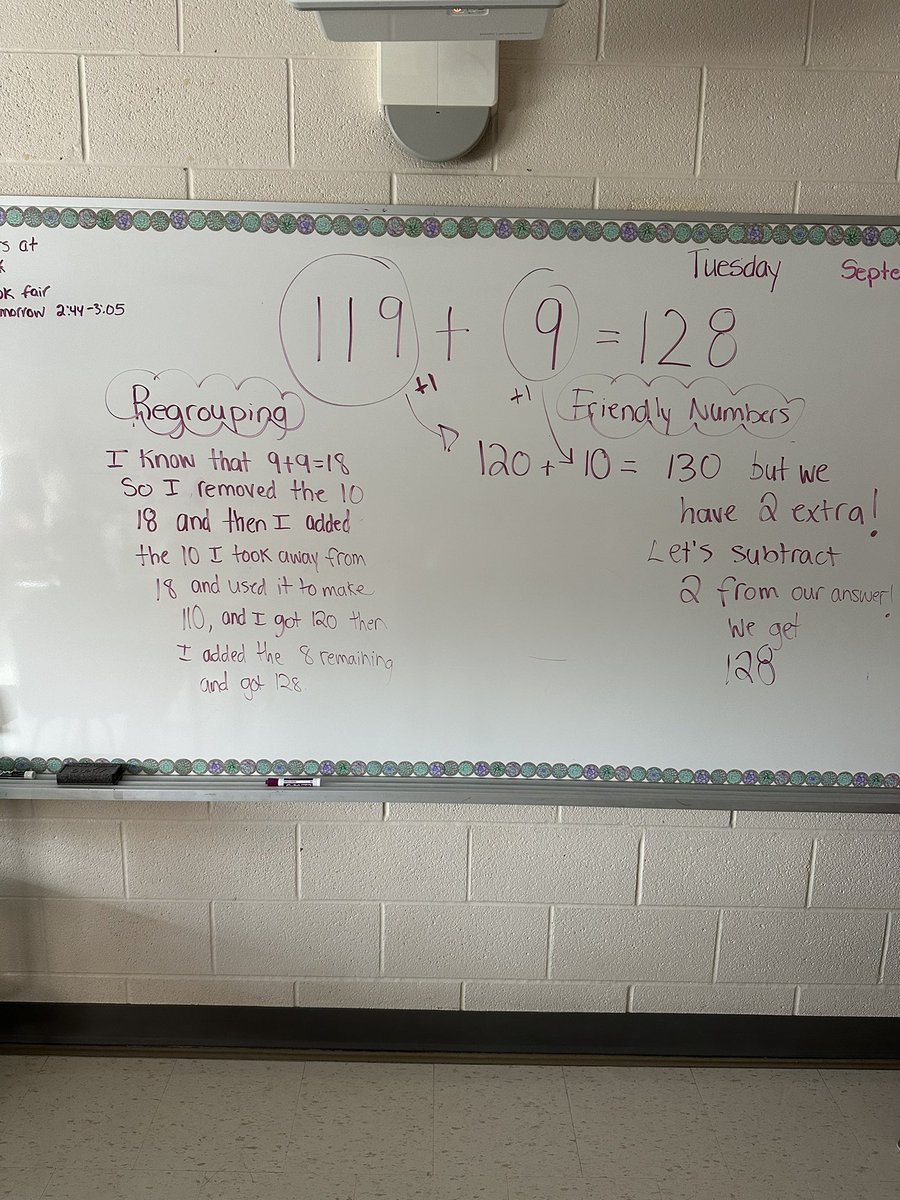 Tuesday
Septe
rs at
ok fair
morrow 2:44-3:05
119 + 9 = 128
+1
+1
Regrouping
I know that 9+9=18
So I removed the 10
18 and then I added
the 10 I took away from
18 and used it to make
110, and I got 120 then
I added the 8 remaining
and got 128.
Friendly Numbers
120 + 10 = 130 but we
have 2 extra!
Let's subtract
2 from our answer!
We get
128